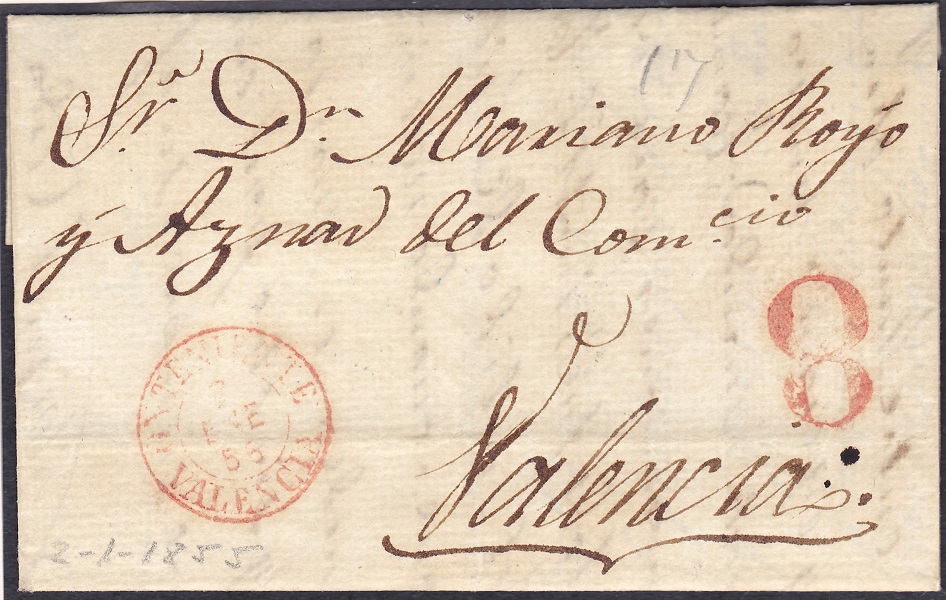 17
Sr. Dn. Mariano Royo
y Aznar del Com.cio
8
ONTENIENTE
2
ENE
55
VALENCIA
Valencia.
2-1-1855